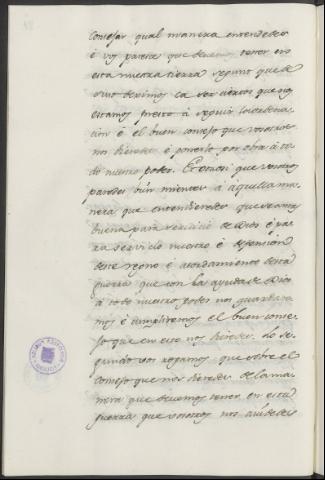 consejar qual manera entendedes
é vos parece que devemos tener en
esta nuestra tierra segunt que de
suso dezimos ca ser ciertos que nos
estamos presto á seguir la ordena
cion é el buen consejo que vosotros
nos dieredes é ponerlo por obra á to
do nuestro poder. Et otrosi que vosotros
parades bien mientes á aquella ma
nera que entendieredes que seamos
buena para servicio de Dios é pa
ra servicio nuestro é defension
deste regno é acordamiento desta
guerra que con la ayuda de Dios
á todo nuestro poder nos guardare
mos é cumpliremos el buen conse
jo que en eso nos dieredes. Lo se
gundo vos rogamos que sobre el
consejo que nos dieredes de la ma
nera que devemos tener en esta
guerra que vosotros nos ayudedes